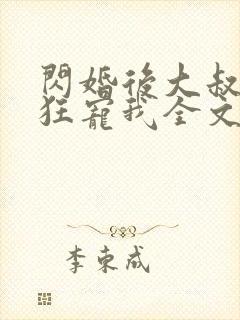 閃婚後大叔
狂寵我全文
李束成